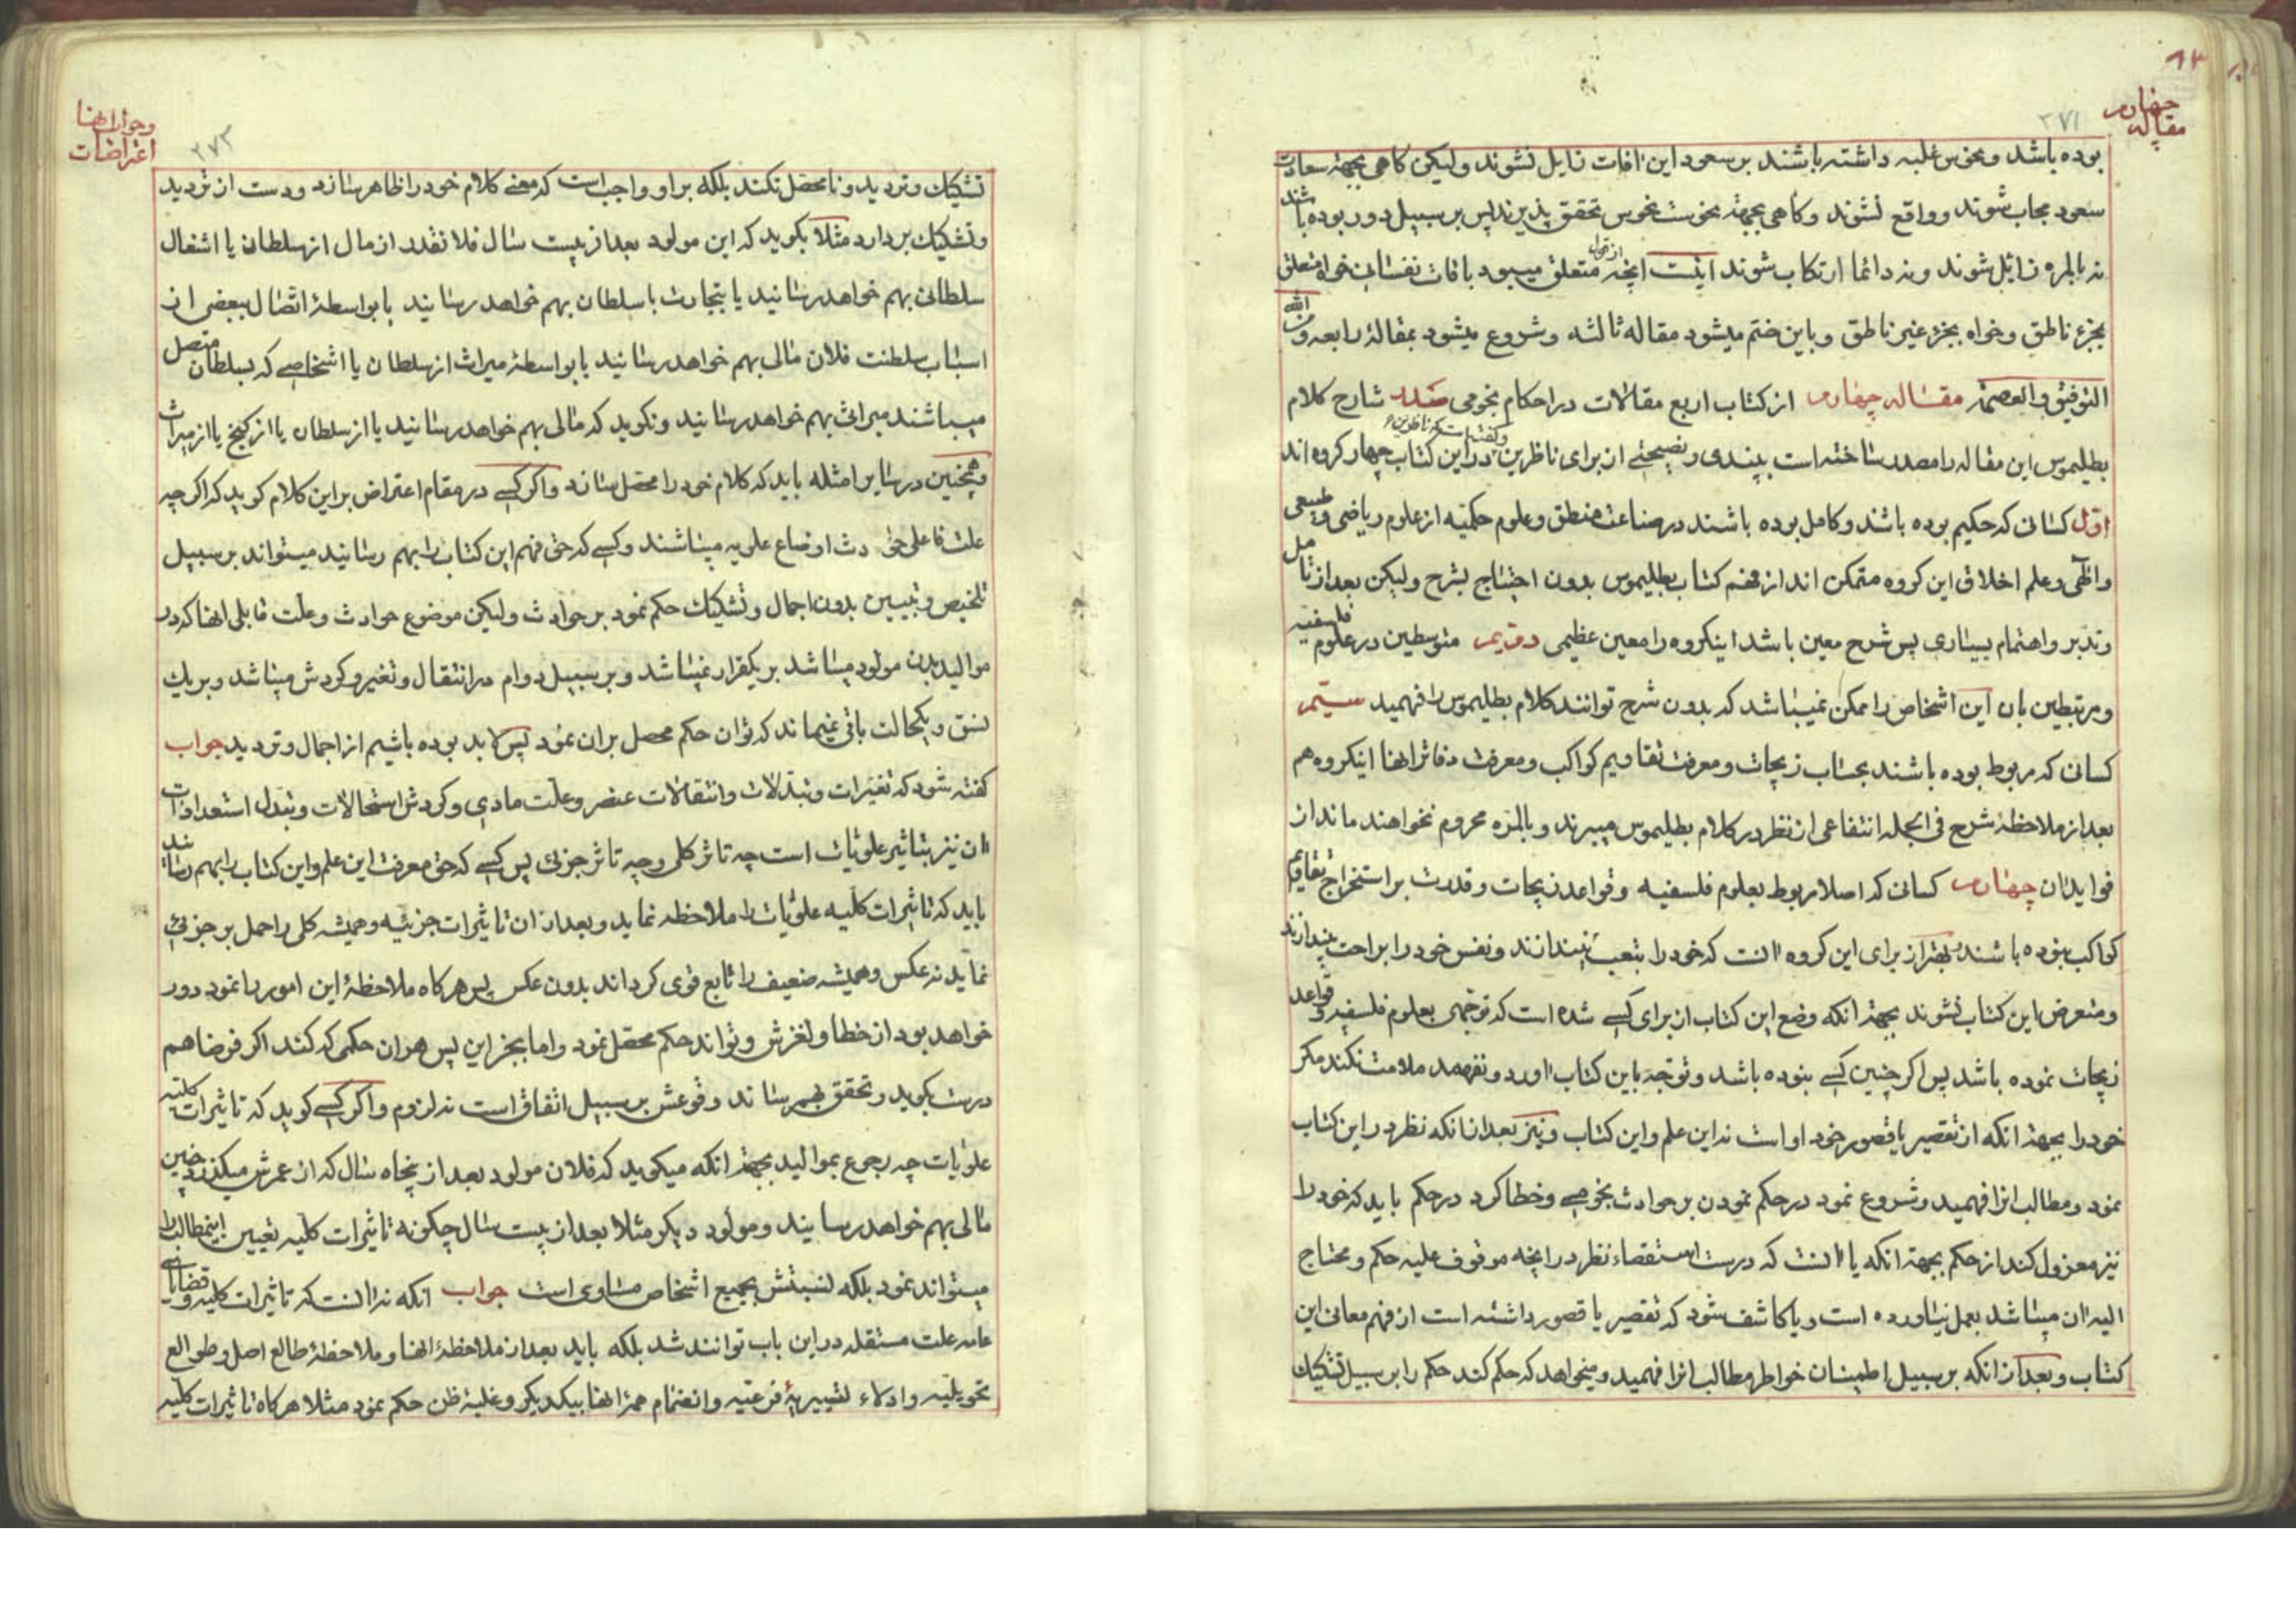 مقاله چهارم
۲۷۱
بوده باشد و نحوس غلبه داشته باشند بر سعود این آفات زایل نشوند ولیکن کاهی بجهة سعادت
سعود مجاب شوند و واقع نشوند و کاهی بجهة نحوست نحوس تحقق پذیرند پس بر سبیل دور بوده باشند
نه بالمره زائل شوند و نه دائما ارتکاب شوند اینست انچه متعلق میبود بافات نفسانی خواه متعلق
بجزء ناطق و خواه بجزء غیر ناطق و باین ختم میشود مقاله ثالثه و شروع میشود بمقالۀ رابعه و من الله
التوفیق و العصمة مقاله چهارم از کتاب اربع مقالات در احکام نجومی صدر شارح کلام
بطلیموس این مقاله را مصدر ساخته است بپندی و نصیحتی از برای ناظرین در این کتاب چهار کروه اند
اول کسانی که حکیم بوده باشند و کامل بوده باشند در صناعت منطق و علوم حکمیه از علوم ریاضی و طبیعی
و الهی و علم اخلاق این کروه متمکن اند از فهم کتاب بطلیموس بدون احتیاج بشرح ولیکن بعد از تامل
و تدبر و اهتمام بسیاری پس شرح معین باشد اینکروه را معین عظیمی دویم متوسطین در علوم فلسفیه
و مرتبطین بان این اشخاص را ممکن نمیباشد که بدون شرح توانند کلام بطلیموس را فهمید سیم
کسانی که مربوط بوده باشند بحساب زیجات و معرفت تقاویم کواکب و معرفت دفاتر انها اینکروه هم
بعد از ملاحظۀ شرح فی الجمله انتفاعی از نظر در کلام بطلیموس میبرند و بالمره محروم نخواهند ماند از
فواید ان چهارم کسانی که اصلا مربوط بعلوم فلسفیه و قواعد زیجات و قدرت بر استخراج تقاویم
کواکب نبوده باشند بهتر از برای این کروه انست که خود را بتعب نیندازند و نفس خود را براحت بیندازند
و متعرض این کتاب نشوند بجهة انکه وضع این کتاب از برای کسی شده است که توجهی بعلوم فلسفیه و قواعد
زیجات نموده باشد پس اکر چنین کسی نبوده باشد و توجه باین کتاب اورد و نفهمد ملامت نکند مکر
خود را بجهة انکه از تقصیر یا قصور خود اوست نه این علم و این کتاب و نیز بعد از انکه نظر در این کتاب
نمود و مطالب انرا فهمید و شروع نمود در حکم نمودن بر حوادث بخوصی و خطا کرد در حکم باید که خود را
نیز معزول کند از حکم بجهة انکه یا انست که درست استقصاء نظر در انچه موقوف علیه حکم و محتاج
الیه ان میباشد بعمل نیاورده است و یا کاشف شود که تقصیر یا قصور داشته است از فهم معانی این
کتاب و بعد از انکه بر سبیل اطمینان خواطر مطالب انرا فهمید و میخواهد که حکم کند حکم را بر سبیل تشکیک
اعتراضات و جوابانها
۲۷۳
تشکیک و تردید و نا محصل نکند بلکه بر او واجب است که معنی کلام خود را ظاهر سازد و دست از تردید
و تشکیک بردارد مثلا بکوید که این مولود بعد از بیست سال فلانقدر از مال از سلطان یا اشغال
سلطانی بهم خواهد رسانید یا بتجارت با سلطان بهم خواهد رسانید یا بواسطۀ اتصال ببعضی از
اسباب سلطنت فلان مالی بهم خواهد رسانید یا بواسطۀ میراث از سلطان یا اشخاصی که بسلطان متصل
میباشند میراثی بهم خواهد رسانید و نکوید که مالی بهم خواهد رسانید یا از سلطان یا از کنج یا از میراث
و همچنین در سایر امثله باید که کلام خود را محصل سازد و اکر کسی در مقام اعتراض بر این کلام کوید که اکر چه
علت فاعلی حوادث اوضاع علویه میباشند و کسی که حق فهم این کتاب را بهم رسانید میتواند بر سبیل
تلخیص و تبیین بدون اجمال و تشکیک حکم نمود بر حوادث ولیکن موضوع حوادث و علت قابلی انها که در
موالید بدن مولود میباشد بر یکقرار نمیباشد و بر سبیل دوام در انتقال و تغیر و کردش میباشد و بر یک
نسق و یکحالت باقی نمیماند که توان حکم محصل بر ان نمود پس لابد بوده باشیم از اجمال و تردید جواب
کفته شود که تغیرات و تبدلات و انتقالات عنصر و علت مادی و کردش استحالات و تبدل استعدادات
ان نیز بتاثیر علویات است چه تاثر کلی و چه تاثر جزئی پس کسی که حق معرفت این علم و این کتاب را بهم رسانید
باید که تاثیرات کلیه علویات را ملاحظه نماید و بعد از ان تاثیرات جزئیه و همیشه کلی را حمل بر جزئی
نماید نه عکس و همیشه ضعیف را تابع قوی کرداند بدون عکس پس هر کاه ملاحظۀ این امور را نمود دور
خواهد بود از خطا و لغزش و تواند حکم محصل نمود و اما بجز این پس هر ان حکمی که کنند اکر فرضا هم
درست بکوید و تحقق بهم رساند وقوعش بر سبیل اتفاق است نه لزوم و اکر کسی کوید که تاثیرات کلیه
علویات چه رجوع بموالید بجهة انکه میکوید که فلان مولود بعد از پنجاه سال که از عمرش میکذرد چنین
مالی بهم خواهد رسانید و مولود دیکر مثلا بعد از بیست سال چکونه تاثیرات کلیه تعیین اینمطالب را
میتواند نمود بلکه نسبتش بجمیع اشخاص مساوی است جواب انکه نه انست که تاثیرات کلیه و قضایای
عامه علت مستقله در این باب توانند شد بلکه باید بعد از ملاحظۀ انها و ملاحظۀ طالع اصل و طوالع
تحویلیه و ادلاء تسییریۀ فرعیه و انضمام همۀ انها بیکدیکر و غلبۀ ظن حکم نمود مثلا هر کاه تاثیرات کلیه